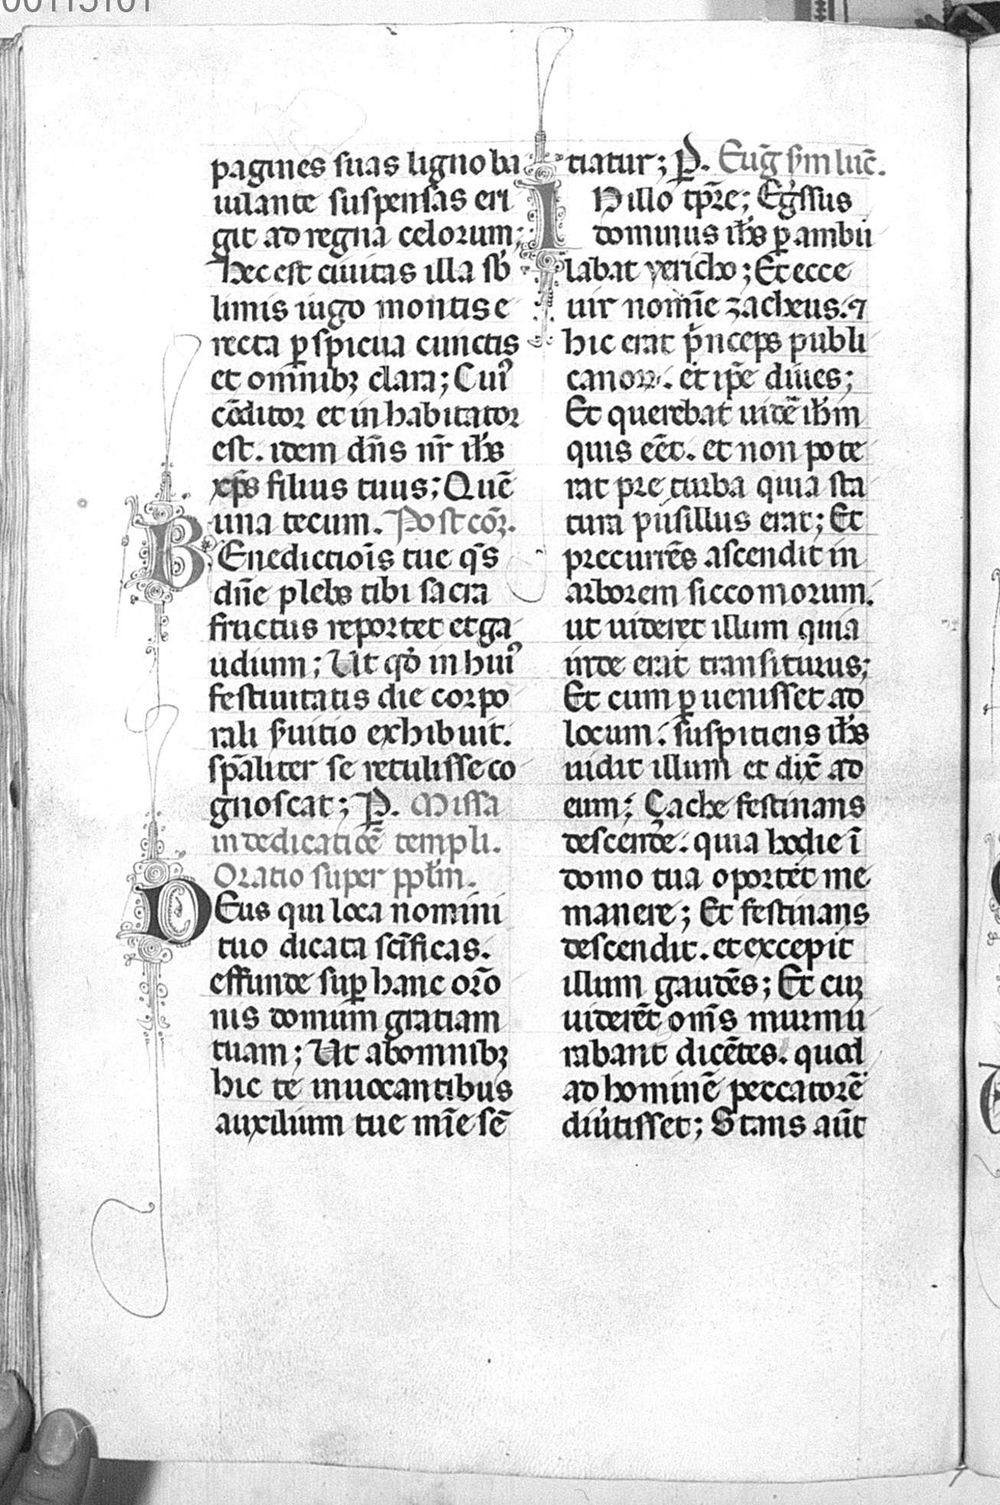 pagines suas ligno ba
iulante suspensas eri
git ad regna celorum;
Hec est ciuitas illa sb̄
limis iugo montis e
recta ꝑspicua cunctis
et omnibꝫ clara; Cuiꝰ
cōditor et in habitator
est. idem dn̄s nr̄ ih̄s
xp̄s filius tuus; Quē
una tecum. Post cōꝫ.
BEnedictiois̄ tue qs̄
dn̄e plebs tibi sacra
fructus reportet et ga
udium; Ut qd̄ in huiꝰ
festiuitatis die corpo
rali s̄uitio exhibuit.
sp̄aliter se retulisse co
gnoscat; P̄. Missa
in dedicatiōe templi.
Oratio super ppl̄m.
DEus qui loca nomini
tuo dicata scīficas.
effunde suꝑ hanc orō
nis domum gratiam
tuam; Ut abomnibꝫ
hic te inuocantibus
auxilium tue mīe sē
tiatur; P̄. Euḡ sm̄ luc̄.
IN illo tp̄re; Egr̄ssus
dominus ih̄s ꝑ ambu
labat yericho; Et ecce
uir noīe zacheus. ⁊
hic erat pn̄ceps publi
canoꝝ. et ip̄e diues;
Et querebat uidē ih̄m
quis eēt. et non pote
rat pre turba quia sta
tura pusillus erat; Et
precurrēs ascendit in
arborem siccomorum.
ut uideret illum quia
inde erat transiturus;
Et cum ꝑuenisset ad
locum. suspitiens ih̄s
uidit illum et dix̄ ad
eum; Çache festinans
descende. quia hodie ī
domo tua oportet me
manere; Et festinans
descendit. et excepit
illum gaudēs; Et cuꝫ
uiderēt om̄s murmu
rabant dicētes. quod
ad hominē peccatorē
diūtisset; Stans aūt